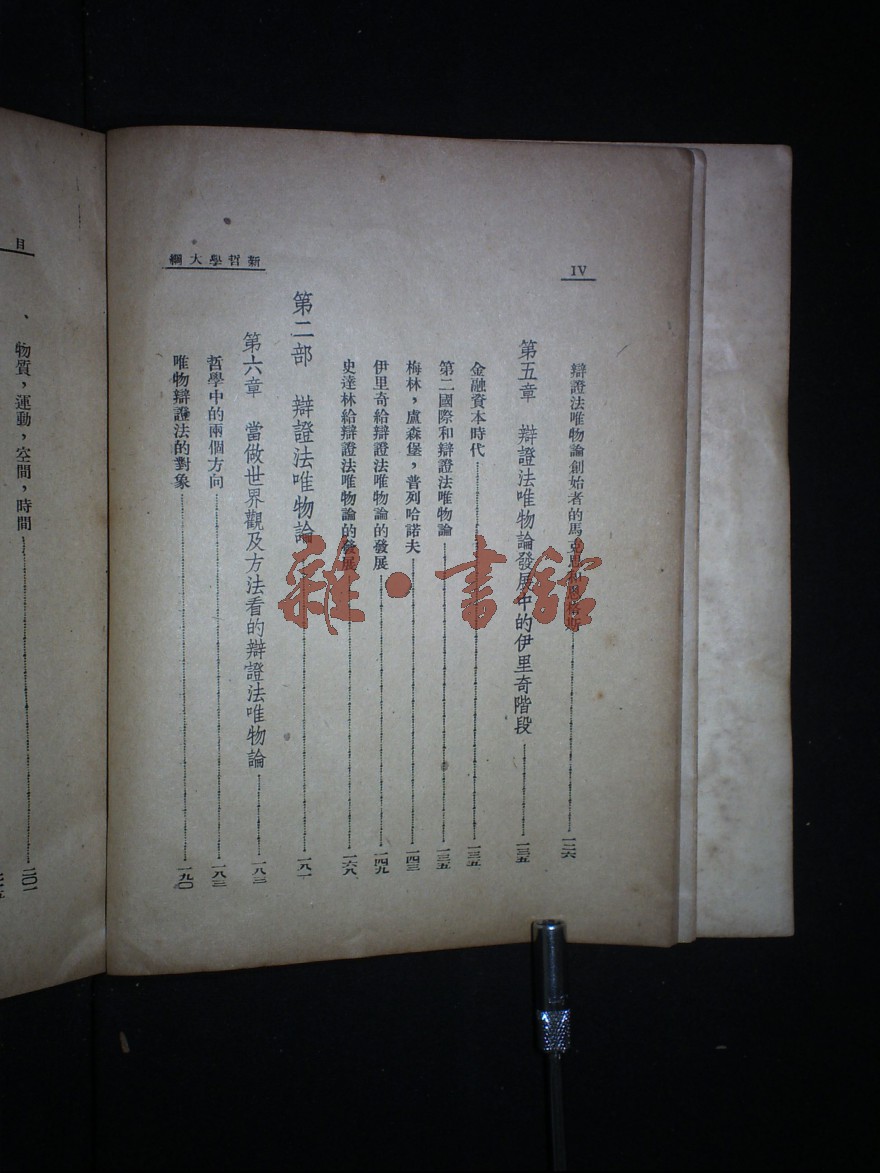 IV
新哲學大綱
辯證法唯物論創始者的馬克思和恩格斯 一二六
第五章 辯證法唯物論發展中的伊里奇階段 一三五
金融資本時代 一三五
第二國際和辯證法唯物論 一三五
梅林,盧森堡,普列哈諾夫 一四三
伊里奇給辯證法唯物論的發展 一四九
史達林給辯證法唯物論的發展 一六八
第二部 辯證法唯物論 一八一
第六章 當做世界觀及方法看的辯證法唯物論 一八三
哲學中的兩個方向 一八三
唯物辯證法的對象 一九〇
目
物質,運動,空間,時間 二〇一
雜·書館